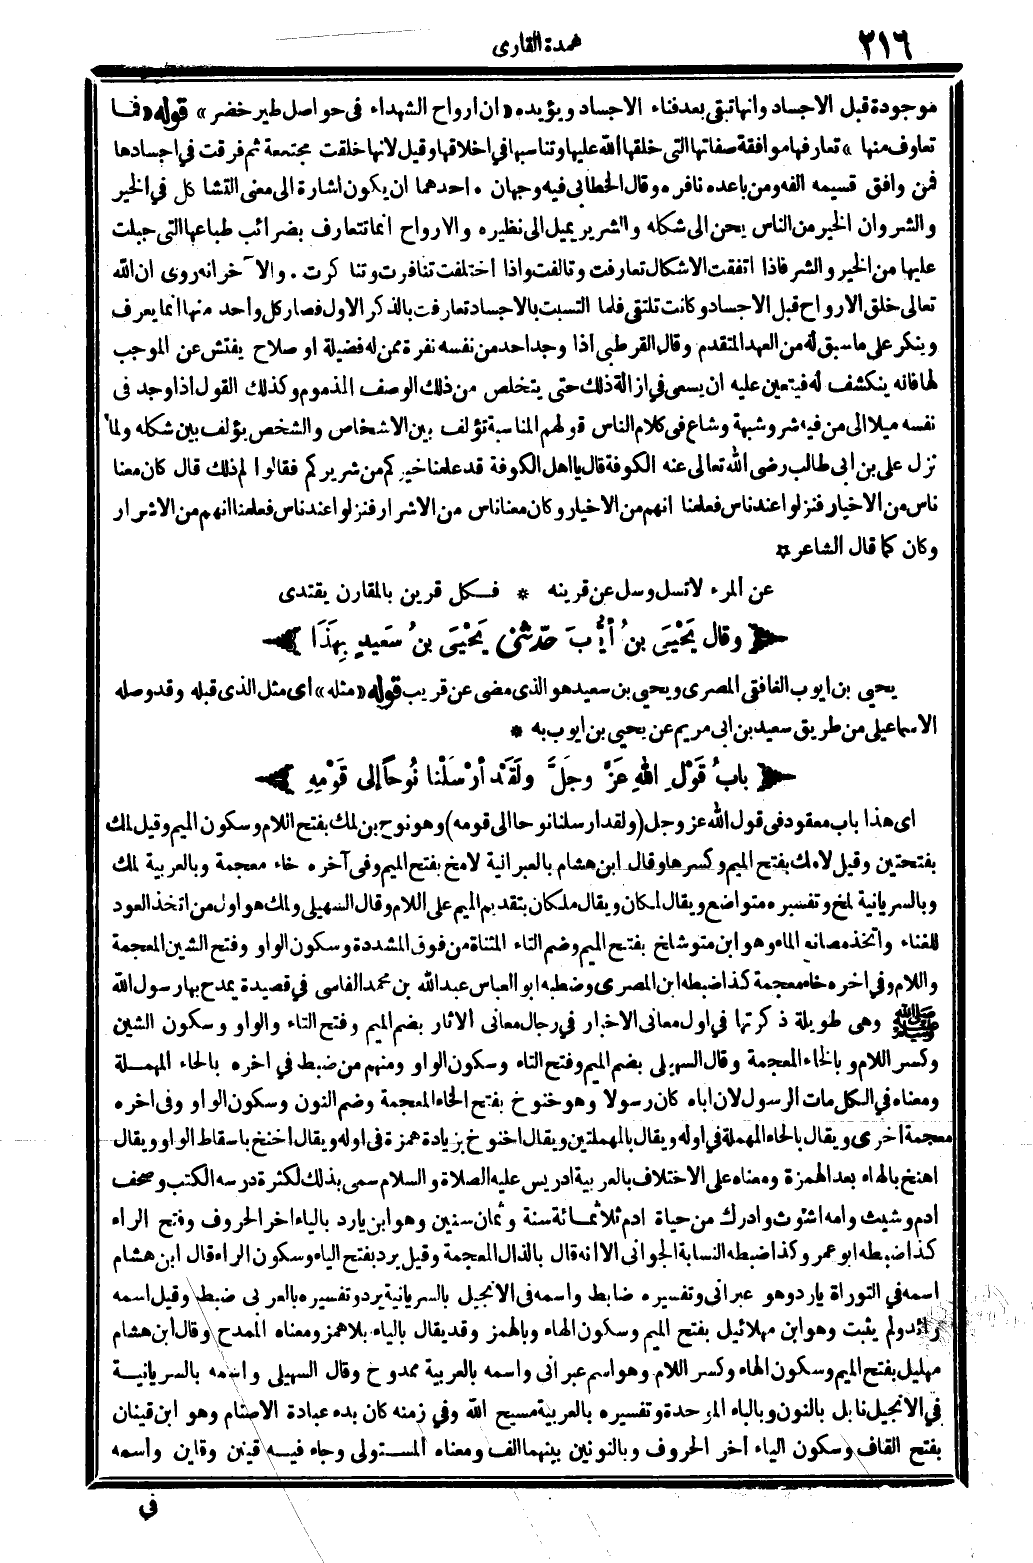 ٢١٦ عمدة القارى
موجودة قبل الاجساد وانها تبقى بعد فناء الاجساد ويؤيده «ان ارواح الشهداء فى حواصل طير خضر» قوله «فما
تعاوف منها» تعارفها موافقة صفاتها التى خلقها الله عليها وتناسبها في اخلاقها وقيل لانها خلقت مجتمعة ثم فرقت في اجسادها
فمن وافق قسيمه الفه ومن باعده نافره وقال الخطابي فيه وجهان . احدهما ان يكون اشارة الى معنى التشا كل في الخير
والشر وان الخير من الناس يحن الى شكله والشرير يميل الى نظيره والارواح انما تتعارف بضرائب طباعها التى جبلت
عليها من الخير والشر فاذا اتفقت الاشكال تعارفت وتالفت واذا اختلفت تنافرت وتنا كرت . والآخر انه روى ان الله
تعالى خلق الارواح قبل الاجساد وكانت تلتقى فلما التسبت بالاجساد تعارفت بالذكر الاول فصار كل واحد منها انما يعرف
وينكر على ما سبق له من العهد المتقدم وقال القرطبى اذا وجد احد من نفسه نفرة ممن له فضيلة او صلاح يفتش عن الموجب
لها فانه ينكشف له فيتعين عليه ان يسعى في ازالة ذلك حتى يتخلص من ذلك الوصف المذموم وكذلك القول اذا وجد فى
نفسه ميلا الى من فيه شر وشبهة وشاع فى كلام الناس قولهم المناسبة تؤلف بين الاشخاص والشخص يؤلف بين شكله ولما
نزل على بن ابى طالب رضى الله تعالى عنه الكوفة قال يا اهل الكوفة قد علمنا خيركم من شريركم فقالوا لم ذلك قال كان معنا
ناس من الاخيار فنزلوا عند ناس فعلمنا انهم من الاخيار وكان معنا ناس من الاشرار فنزلوا عند ناس فعلمنا انهم من الاشرار
وكان كما قال الشاعر *
عن المرء لا تسل وسل عن قرينه * فكل قرين بالمقارن يقتدى
﴿ وقال يَحْيَى بنُ أيُّوبَ حَدَّثَنِى يَحْيَى بنُ سَعِيدٍ بِهَذَا ﴾
يحيى بن ايوب الغافقى المصرى ويحيى بن سعيد هو الذى مضى عن قريب قوله «مثله» اى مثل الذى قبله وقد وصله
الاسماعيلى من طريق سعيد بن ابى مريم عن يحيى بن ايوب به *
﴿ بابُ قَوْلِ اللهِ عَزَّ وجَلَّ ولَقَدْ أرْسَلْنا نُوحاً إلى قَوْمِهِ ﴾
اى هذا باب معقود فى قول الله عز وجل (ولقد ارسلنا نوحا الى قومه) وهو نوح بن لمك بفتح اللام وسكون الميم وقيل لمك
بفتحتين وقيل لامك بفتح الميم وكسرها وقال ابن هشام بالعبرانية لامخ بفتح الميم وفى آخره خاء معجمة وبالعربية لمك
وبالسريانية لمخ وتفسيره متواضع ويقال لمكان ويقال ملكان بتقديم الميم على اللام وقال السهيلى ولمك هو اول من اتخذ العود
للغناء واتخذ مصانع الماء وهو ابن متوشلخ بفتح الميم وضم التاء المثناة من فوق المشددة وسكون الواو وفتح الشين المعجمة
واللام وفي اخره خاء معجمة كذا ضبطه ابن المصرى وضبطه ابو العباس عبد الله بن محمد الفاسى في قصيدة يمدح بها رسول الله
ﷺ وهى طويلة ذكرتها في اول معانى الاخبار في رجال معانى الآثار بضم الميم وفتح التاء والواو وسكون الشين
وكسر اللام وبالخاء المعجمة وقال السهيلى بضم الميم وفتح التاء وسكون الواو ومنهم من ضبط في اخره بالحاء المهملة
ومعناه في الكل مات الرسول لان اباه كان رسولا وهو خنوخ بفتح الخاء المعجمة وضم النون وسكون الواو وفى اخره
معجمة اخرى ويقال بالحاء المهملة في اوله ويقال بالمهملتين ويقال اخنوخ بزيادة همزة فى اوله ويقال اخنخ باسقاط الواو ويقال
اهنخ بالهاء بعد الهمزة ومعناه على الاختلاف بالعربية ادريس عليه الصلاة والسلام سمى بذلك لكثرة درسه الكتب وصحف
ادم وشيث وامه اشوث وادرك من حياة ادم ثلاثمائة سنة وثمان سنين وهو ابن يارد بالياء اخر الحروف وفتح الراء
كذا ضبطه ابو عمر وكذا ضبطه النسابة الجوانى الا انه قال بالذال المعجمة وقيل يرد بفتح الياء وسكون الراء قال ابن هشام
اسمه في التوراة يارد وهو عبرانى وتفسيره ضابط واسمه فى الانجيل بالسريانية يرد وتفسيره بالعربى ضبط وقيل اسمه
رائد ولم يثبت وهو ابن مهلائيل بفتح الميم وسكون الهاء وبالهمز وقد يقال بالياء بلا همز ومعناه الممدح وقال ابن هشام
مهليل بفتح الميم وسكون الهاء وكسر اللام وهو اسم عبرانى واسمه بالعربية ممدوح وقال السهيلى واسمه بالسريانية
في الانجيل نابل بالنون وبالباء الموحدة وتفسيره بالعربية مسبح الله وفي زمنه كان بدء عبادة الاصنام وهو ابن قينان
بفتح القاف وسكون الياء آخر الحروف وبالنونين بينهما الف ومعناه المستولى وجاء فيه قينن وقاين واسمه
في